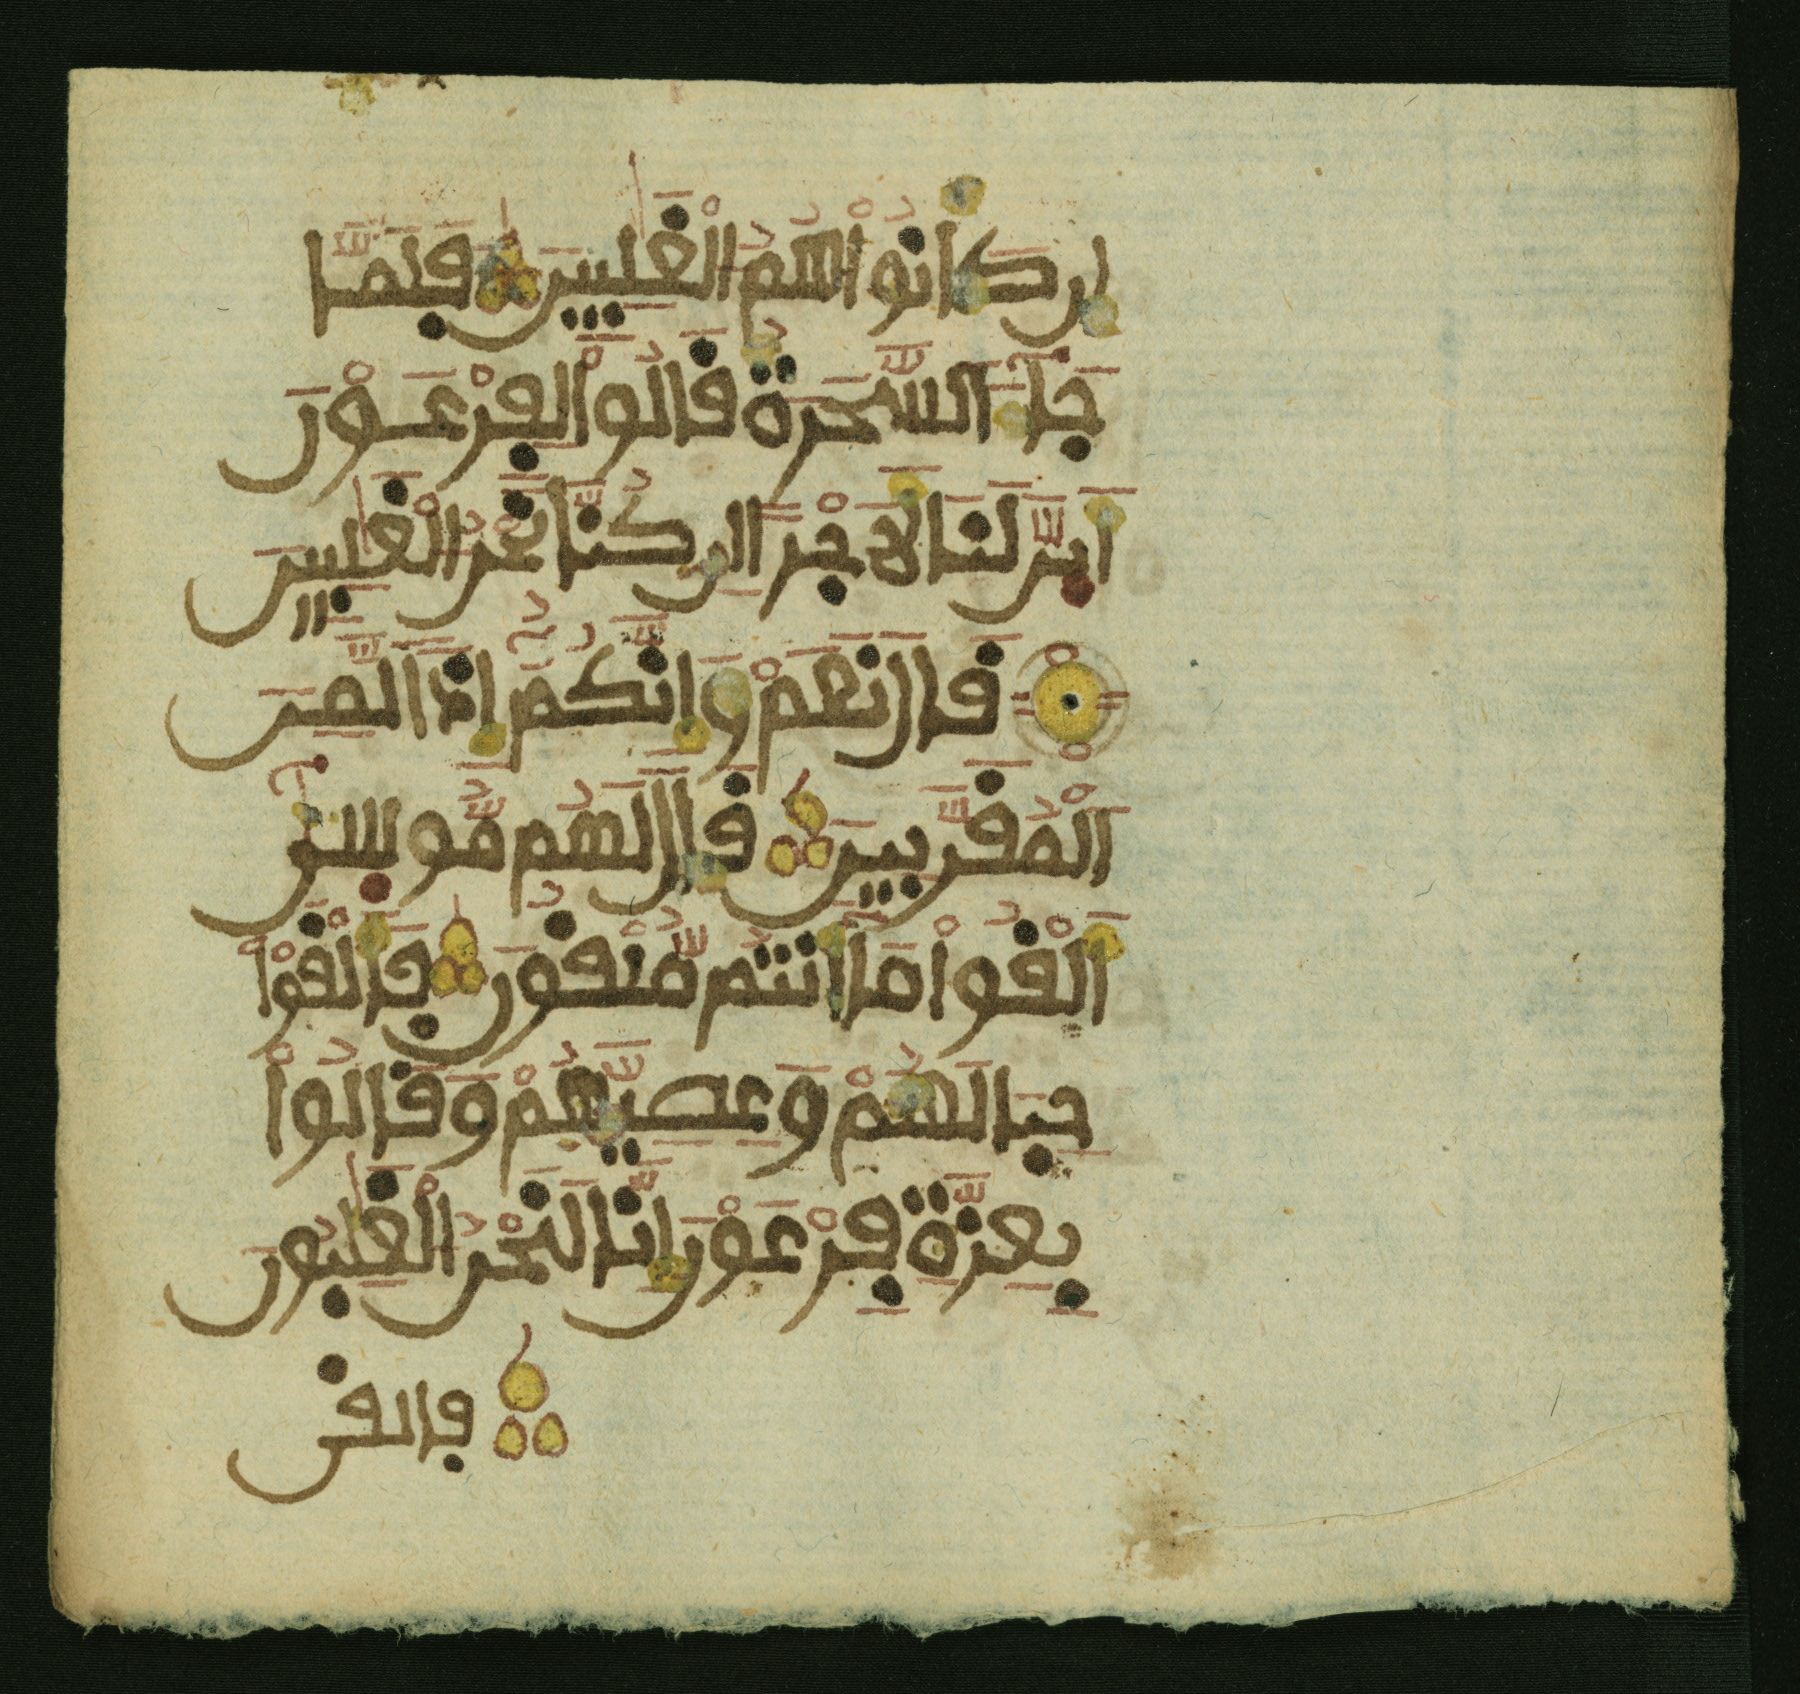 إِن كَانُواْ هُمُ الْغَٰلِبِينَ فَلَمَّا
جَآءَ السَّحَرَةُ قَالُواْ لِفِرْعَوْنَ
أَئِنَّ لَنَا لَأَجْراً إِن كُنَّا نَحْنُ الْغَٰلِبِينَ
قَالَ نَعَمْ وَإِنَّكُمْ إِذاً لَّمِنَ
الْمُقَرَّبِينَ قَالَ لَهُم مُّوسَىٰٓ
أَلْقُواْ مَآ أَنتُم مُّلْقُونَ فَأَلْقَوْاْ
حِبَالَهُمْ وَعِصِيَّهُمْ وَقَالُواْ
بِعِزَّةِ فِرْعَوْنَ إِنَّا لَنَحْنُ الْغَٰلِبُونَ
فالقى